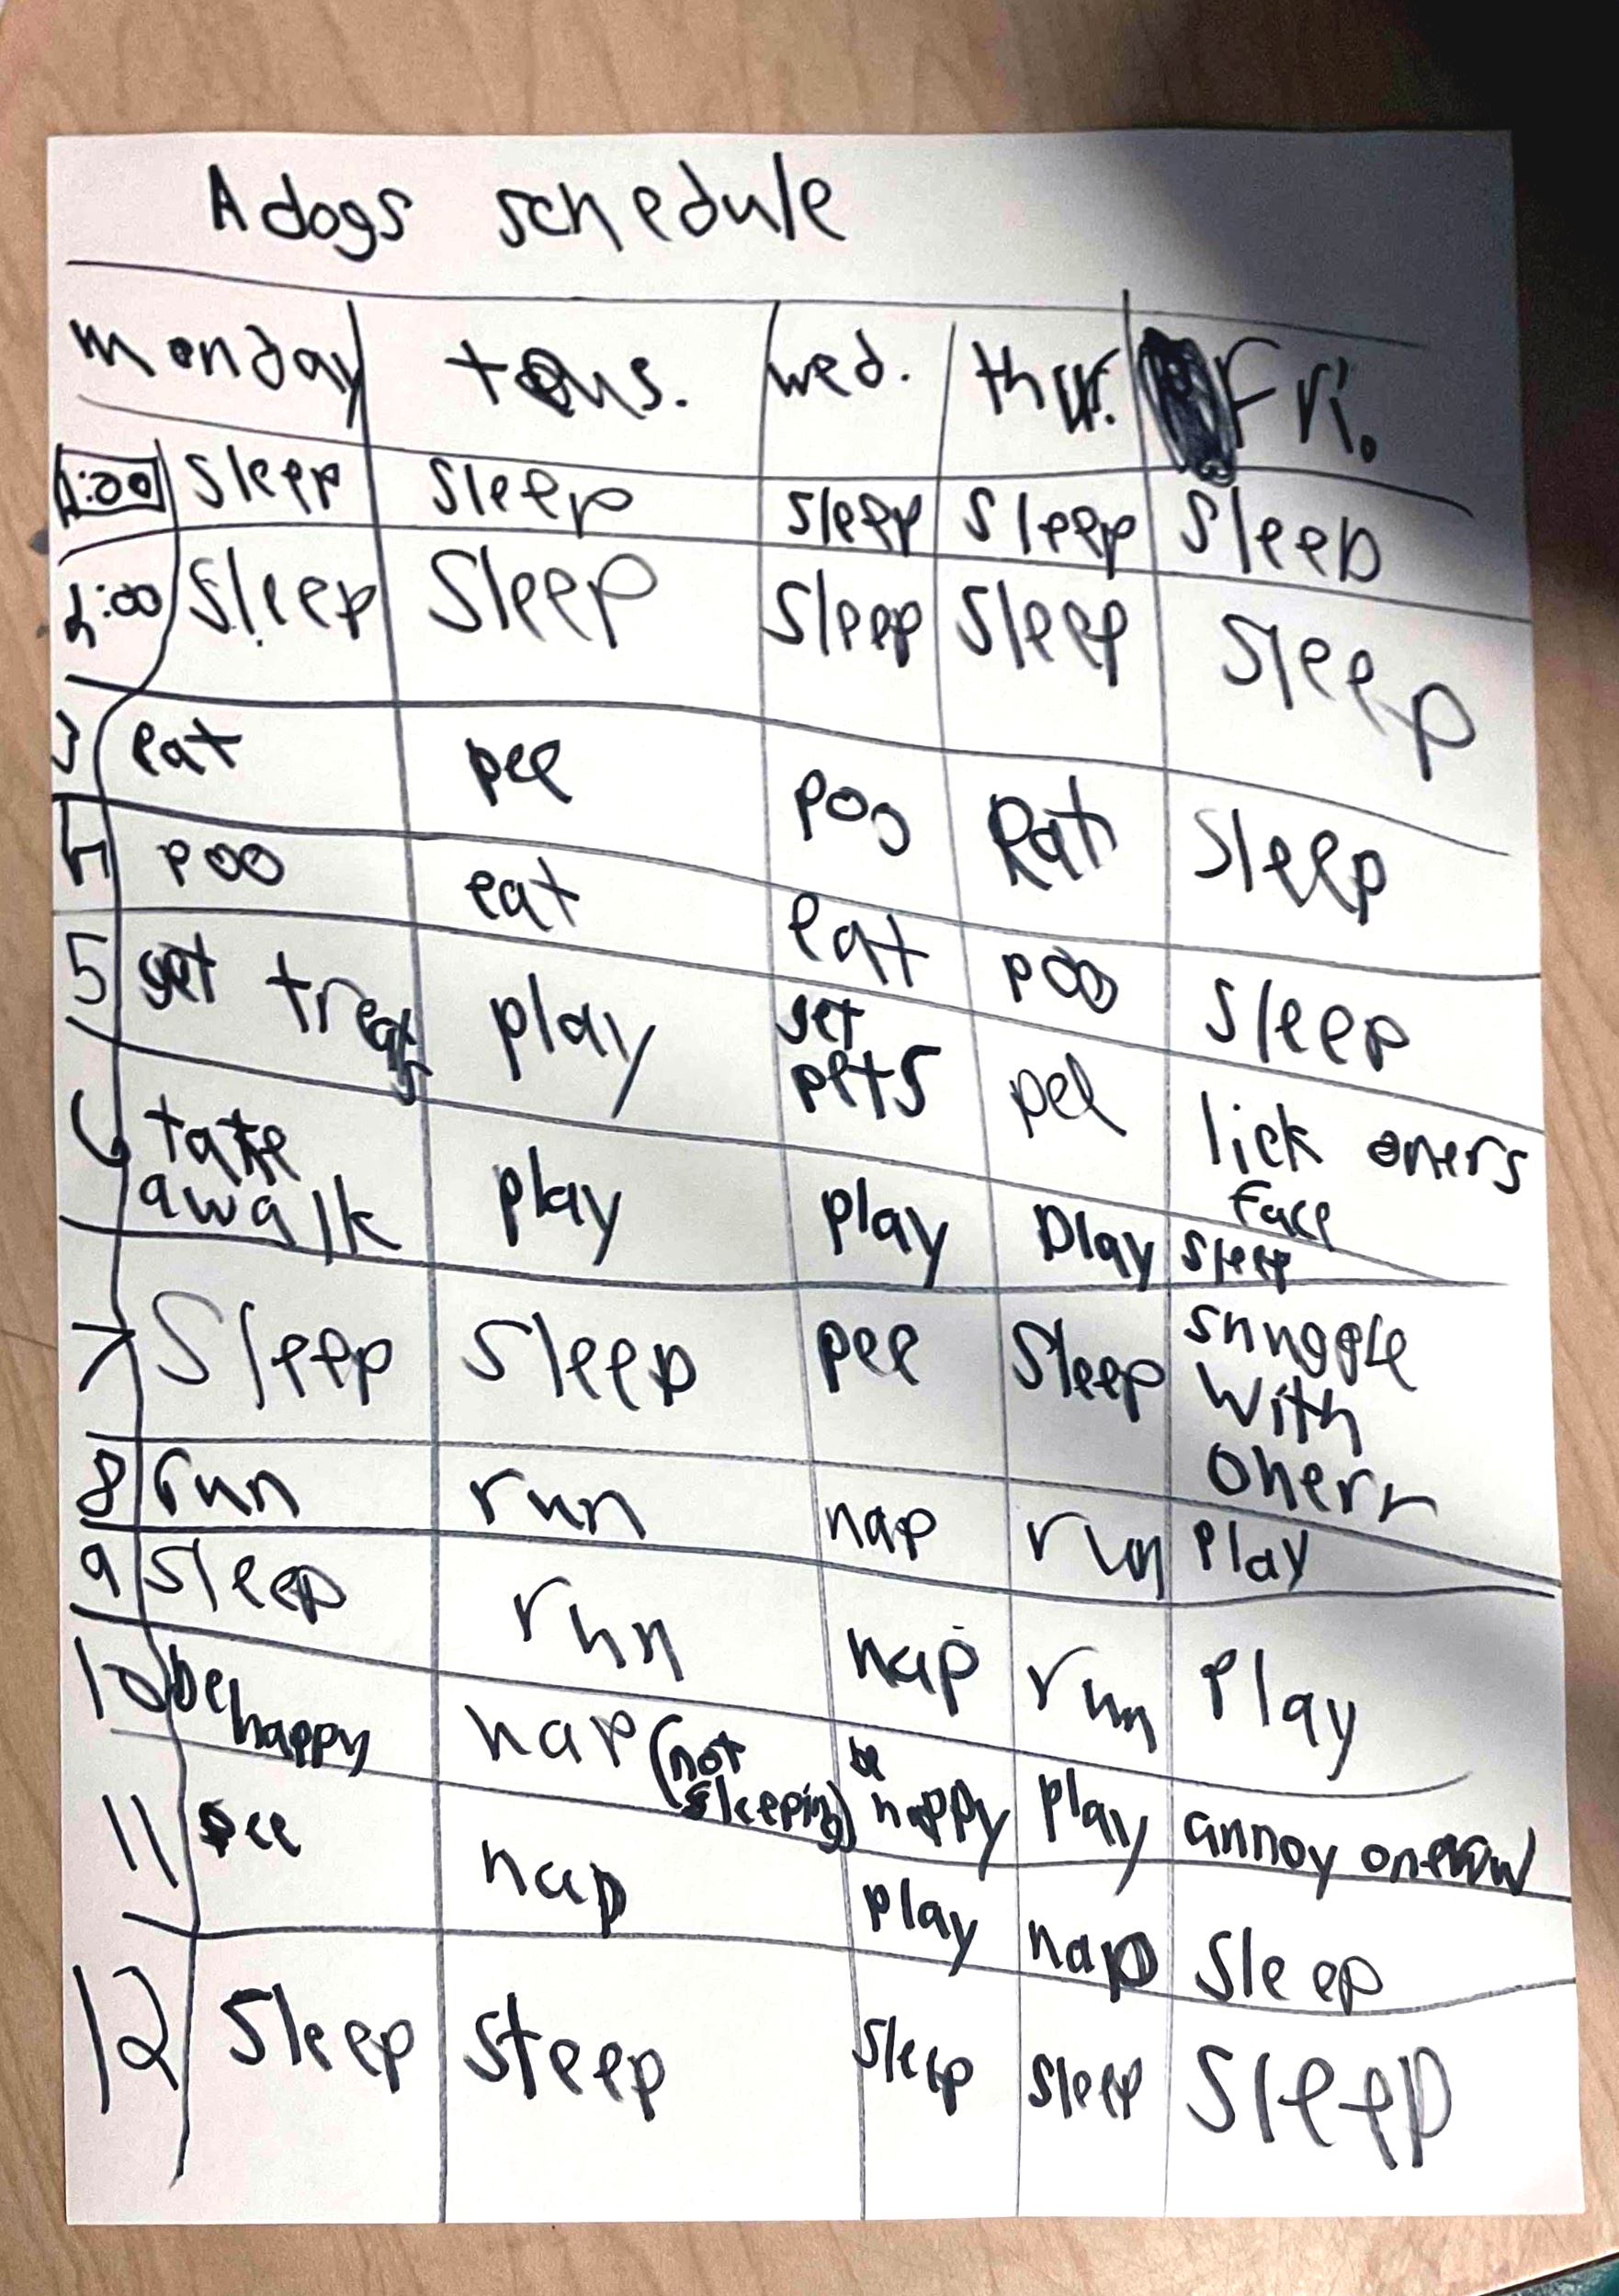 A dogs schedule
monday tous. wed. thur. Fri.
1:00 sleep sleep sleep sleep sleep
2:00 sleep sleep sleep sleep sleep
3 eat pee poo eat sleep
4 poo eat eat poo sleep
5 get treats play get pets pee lick oners face
6 take a walk play play play sleep
7 sleep sleep pee sleep snuggle with onerr
8 run run nap run play
9 sleep run nap run play
10 be happy nap (not sleeping) be happy play annoy
11 pee nap play nap sleep
12 sleep sleep sleep sleep sleep